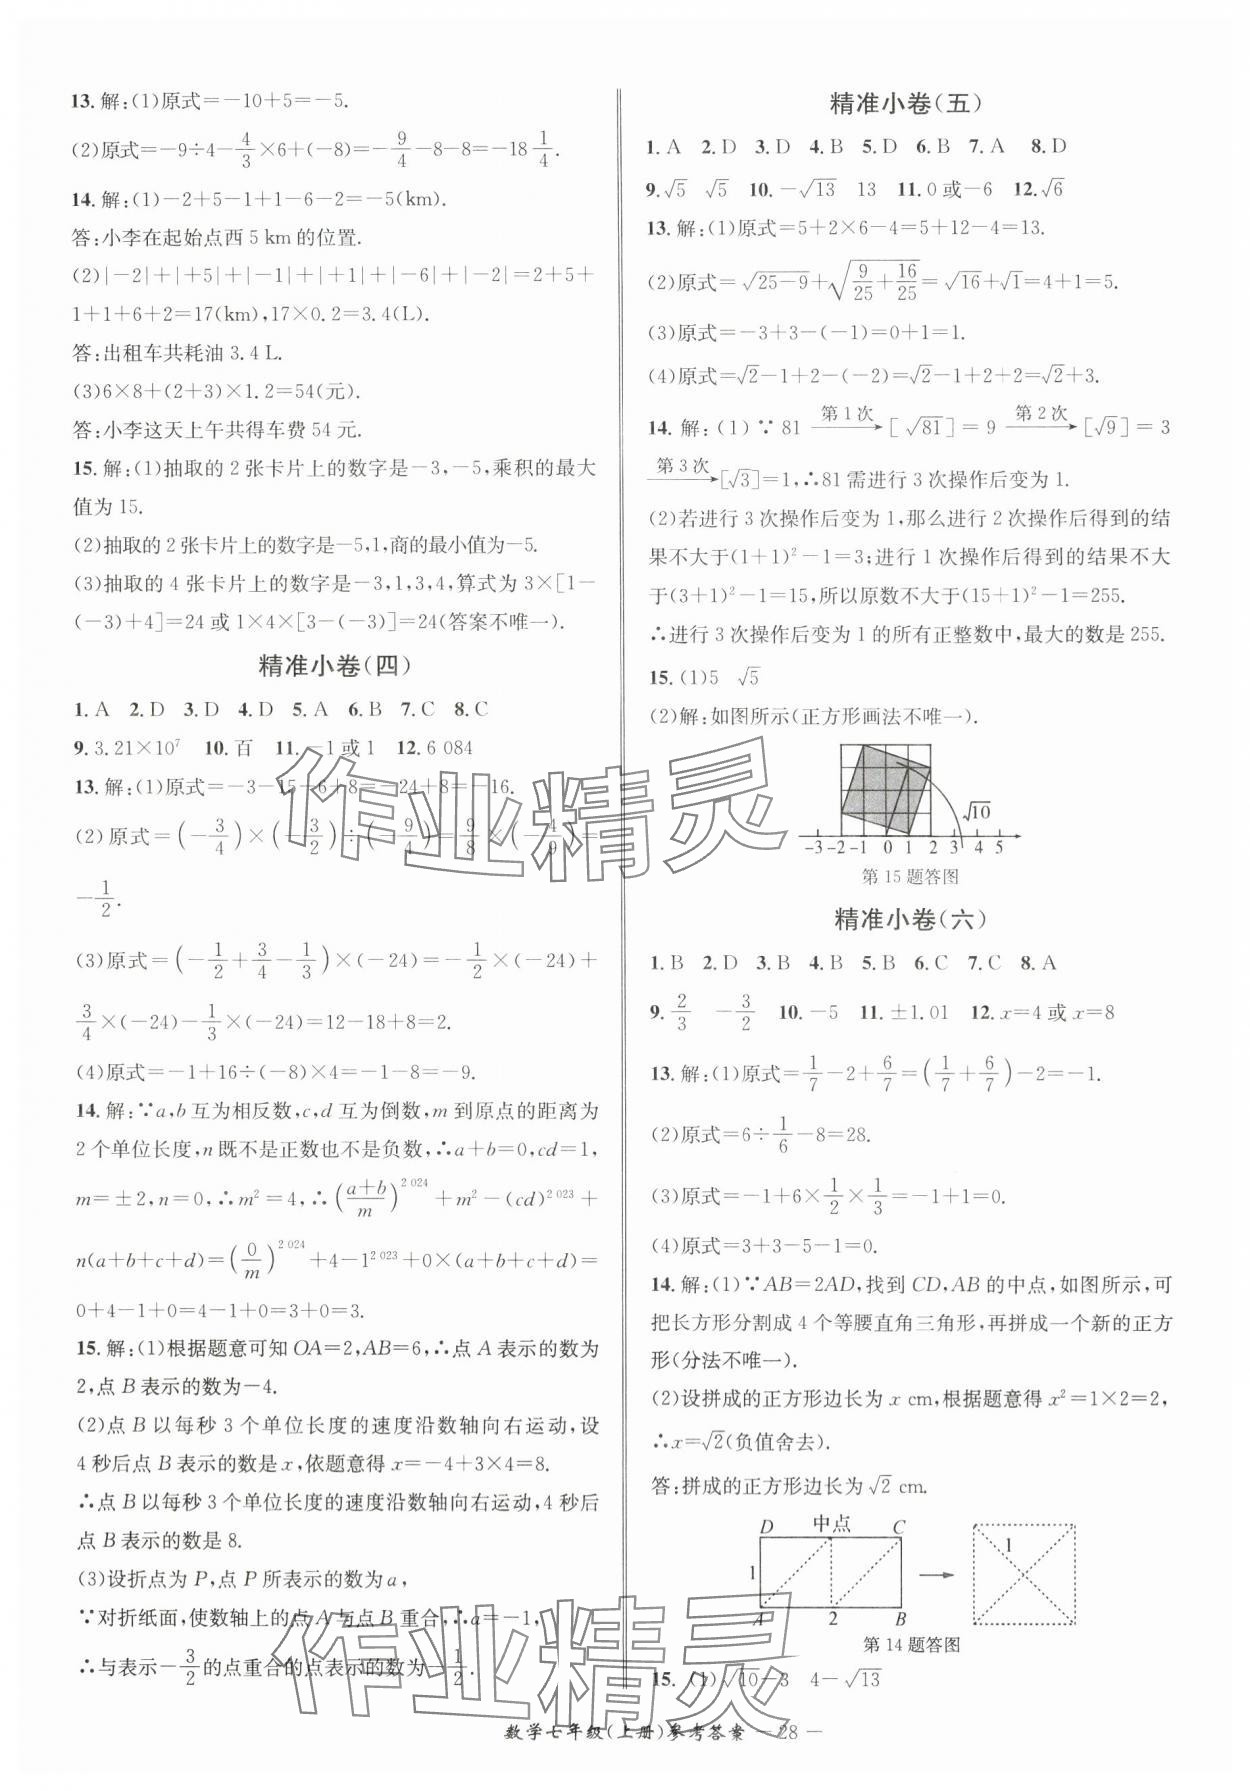 13. 解:(1)原式=-10+5=-5.
(2)原式=-9÷4-4/3×6+(-8)=-9/4-8-8=-18 1/4.
14. 解:(1)-2+5-1+1-6-2=-5(km).
答:小李在起始点西 5 km 的位置.
(2)|-2|+|+5|+|-1|+|+1|+|-6|+|-2|=2+5+
1+1+6+2=17(km),17×0.2=3.4(L).
答:出租车共耗油 3.4 L.
(3)6×8+(2+3)×1.2=54(元).
答:小李这天上午共得车费 54 元.
15. 解:(1)抽取的 2 张卡片上的数字是-3,-5,乘积的最大
值为 15.
(2)抽取的 2 张卡片上的数字是-5,1,商的最小值为-5.
(3)抽取的 4 张卡片上的数字是-3,1,3,4,算式为 3×[1-
(-3)+4]=24 或 1×4×[3-(-3)]=24(答案不唯一).
精准小卷(四)
1. A 2. D 3. D 4. D 5. A 6. B 7. C 8. C
9. 3.21×10⁷ 10. 百 11. -1 或 1 12. 6 084
13. 解:(1)原式=-3-15-6+8=-24+8=-16.
(2)原式=(-3/4)×(-3/2)÷(-9/4)=9/8×(-4/9)=
-1/2.
(3)原式=(-1/2+3/4-1/3)×(-24)=-1/2×(-24)+
3/4×(-24)-1/3×(-24)=12-18+8=2.
(4)原式=-1+16÷(-8)×4=-1-8=-9.
14. 解:∵a,b 互为相反数,c,d 互为倒数,m 到原点的距离为
2 个单位长度,n 既不是正数也不是负数,∴a+b=0,cd=1,
m=±2,n=0,∴m²=4,∴((a+b)/m)^2 024+m²-(cd)^2 023+
n(a+b+c+d)=(0/m)^2 024+4-1^2 023+0×(a+b+c+d)=
0+4-1+0=4-1+0=3+0=3.
15. 解:(1)根据题意可知 OA=2,AB=6,∴点 A 表示的数为
2,点 B 表示的数为-4.
(2)点 B 以每秒 3 个单位长度的速度沿数轴向右运动,设
4 秒后点 B 表示的数是 x,依题意得 x=-4+3×4=8.
∴点 B 以每秒 3 个单位长度的速度沿数轴向右运动,4 秒后
点 B 表示的数是 8.
(3)设折点为 P,点 P 所表示的数为 a,
∵对折纸面,使数轴上的点 A 与点 B 重合,∴a=-1,
∴与表示-3/2的点重合的点表示的数为-1/2.
精准小卷(五)
1. A 2. D 3. D 4. B 5. D 6. B 7. A 8. D
9. √5 √5 10. -√13 13 11. 0 或-6 12. √6
13. 解:(1)原式=5+2×6-4=5+12-4=13.
(2)原式=√(25-9)+√(9/25+16/25)=√16+√1=4+1=5.
(3)原式=-3+3-(-1)=0+1=1.
(4)原式=√2-1+2-(-2)=√2-1+2+2=√2+3.
14. 解:(1)∵81 第 1 次→[√81]=9 第 2 次→[√9]=3
第 3 次→[√3]=1,∴81 需进行 3 次操作后变为 1.
(2)若进行 3 次操作后变为 1,那么进行 2 次操作后得到的结
果不大于(1+1)²-1=3;进行 1 次操作后得到的结果不大
于(3+1)²-1=15,所以原数不大于(15+1)²-1=255.
∴进行 3 次操作后变为 1 的所有正整数中,最大的数是 255.
15. (1)5 √5
(2)解:如图所示(正方形画法不唯一).
√10
-3 -2 -1 0 1 2 3 4 5
第 15 题答图
精准小卷(六)
1. B 2. D 3. B 4. B 5. B 6. C 7. C 8. A
9. 2/3 -3/2 10. -5 11. ±1.01 12. x=4 或 x=8
13. 解:(1)原式=1/7-2+6/7=(1/7+6/7)-2=-1.
(2)原式=6÷1/6-8=28.
(3)原式=-1+6×1/2×1/3=-1+1=0.
(4)原式=3+3-5-1=0.
14. 解:(1)∵AB=2AD,找到 CD,AB 的中点,如图所示,可
把长方形分割成 4 个等腰直角三角形,再拼成一个新的正方
形(分法不唯一).
(2)设拼成的正方形边长为 x cm,根据题意得 x²=1×2=2,
∴x=√2(负值舍去).
答:拼成的正方形边长为 √2 cm.
D 中点 C
1 1
A 2 B
第 14 题答图
15. (1)√10-3 4-√13
数学七年级(上册)参考答案 — 28 —
作业精灵
作业精灵